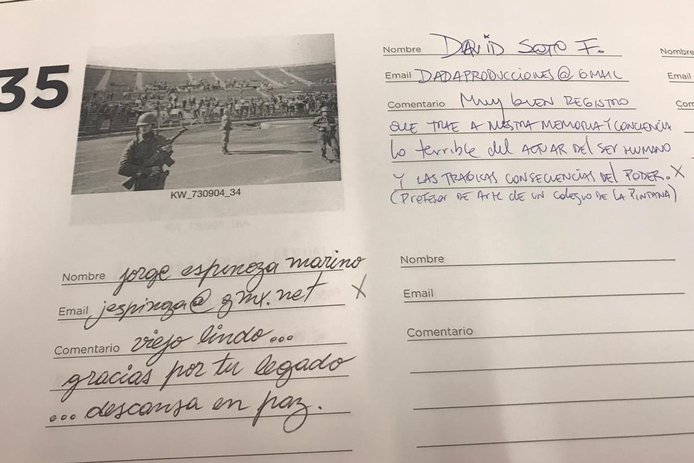 35
KW_730904_34
Nombre jorge espinoza marino
Email jespinoza@gmx.net X
Comentario viejo lindo...
gracias por tu legado
... descansa en paz.
Nombre DAVID SOTO F.
Email DADAPRODUCCIONES@GMAIL
Comentario MUY BUEN REGISTRO
QUE TRAE A NUESTRA MEMORIA Y CONCIENCIA
lo terrible del ACTUAR DEL SER HUMANO
Y LAS TRAGICAS CONSECUENCIAS DEL PODER. X
(PROFESOR DE ARTE DE UN COLEGIO DE LA PINTANA)
Nombre
Email
Comentario
Nombre
Email
Comen